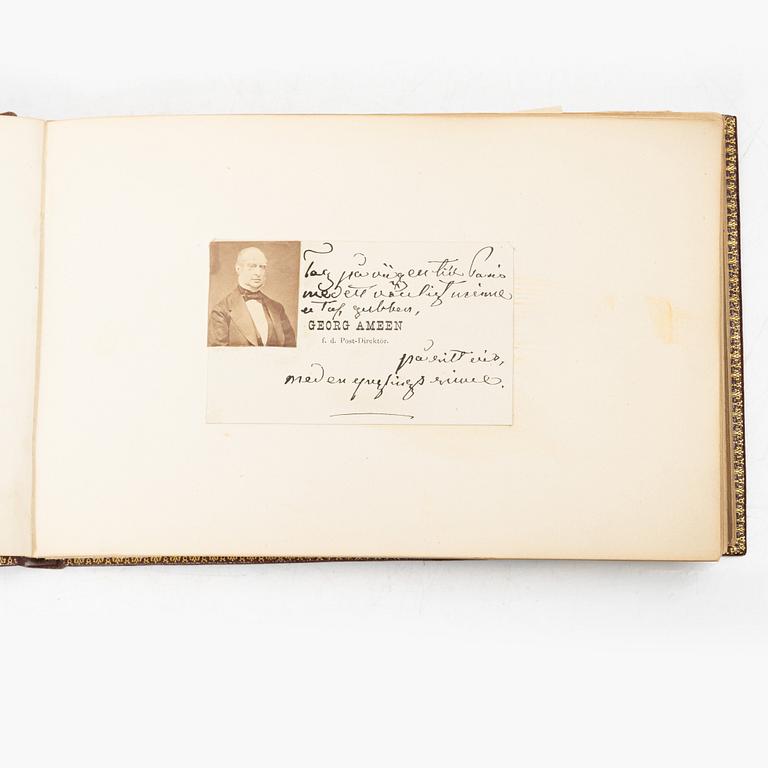 Tag på vägen till Paris
med ett vänligt minne
utaf gubben,
GEORG AMEEN
f. d. Post-Direktör.
på sitt vis,
med en ynglings sinne.